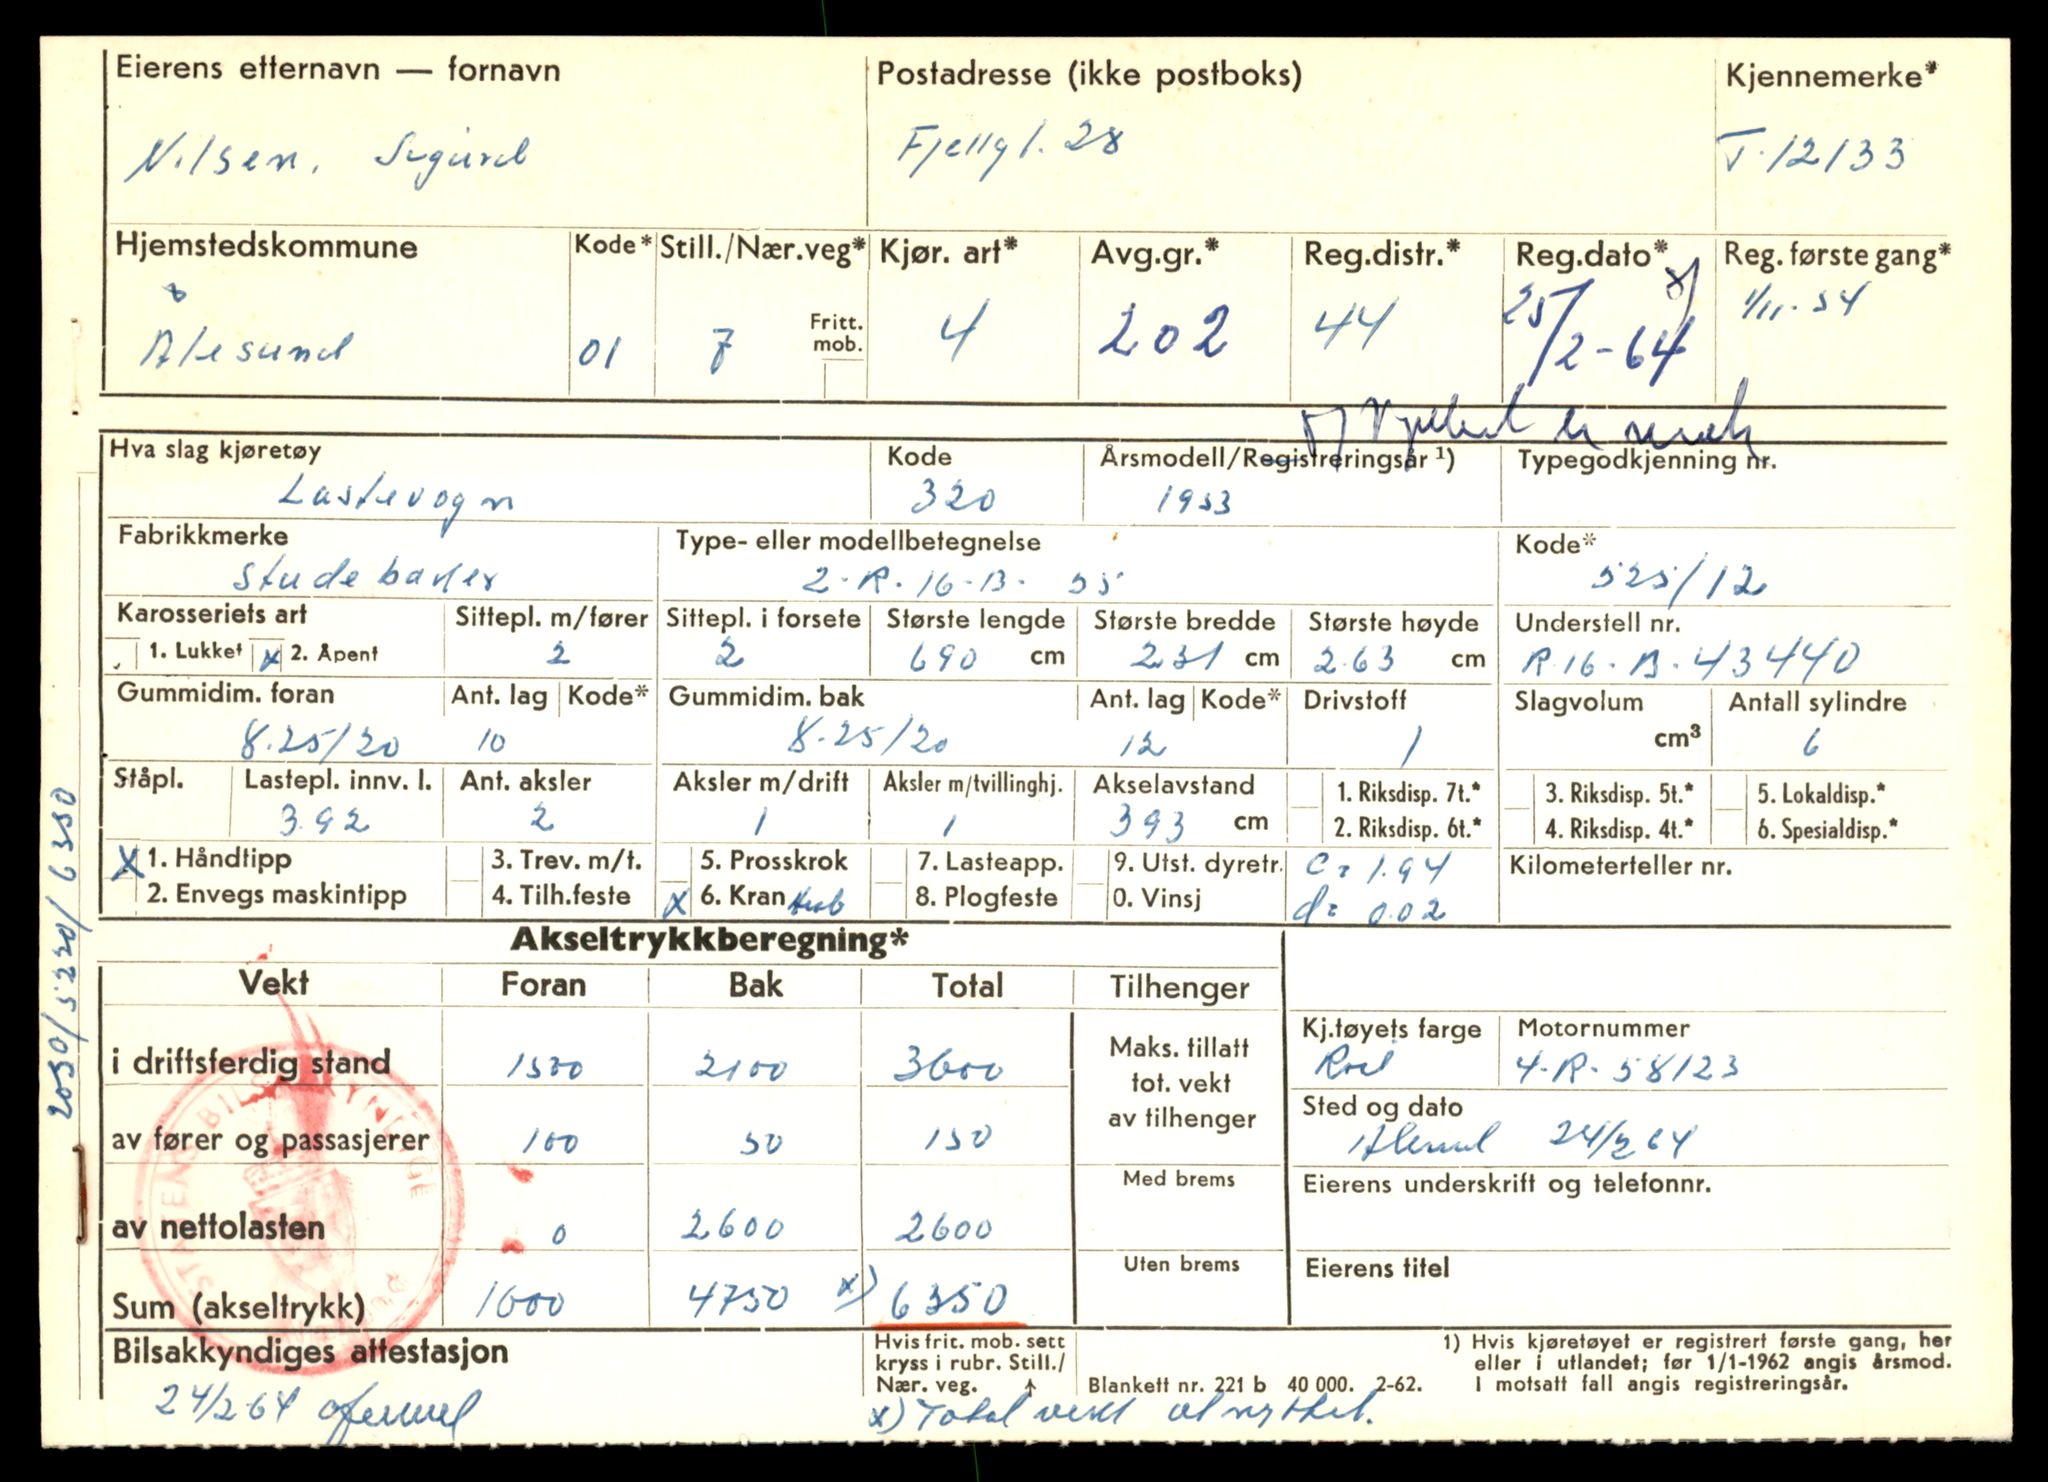 Eierens etternavn — fornavn
Nilsen, Sigurd
Postadresse (ikke postboks)
Fjellgt. 28
Kjennemerke*
T-12133
Hjemstedskommune
Ålesund
Kode*
01
Still./Nær.veg*
7
Fritt. mob.
Kjør. art*
4
Avg.gr.*
202
Reg.distr.*
44
Reg.dato*
25/2-64
Reg. første gang*
1/11-54
Hva slag kjøretøy
Lastevogn
Kode
320
Årsmodell/Registreringsår ¹)
1953
Typegodkjenning nr.
Fabrikkmerke
Studebaker
Type- eller modellbetegnelse
2-R-16-B-55
Kode*
525/12
Karosseriets art
1. Lukket x 2. Åpent
Sittepl. m/fører
2
Sittepl. i forsete
2
Største lengde
690 cm
Største bredde
231 cm
Største høyde
2.63 cm
Understell nr.
R.16-B-43440
Gummidim. foran
8.25/20
Ant. lag
10
Kode*
Gummidim. bak
8.25/20
Ant. lag
12
Kode*
Drivstoff
1
Slagvolum
cm³
Antall sylindre
6
Ståpl.
Lastepl. innv. l.
3.92
Ant. aksler
2
Aksler m/drift
1
Aksler m/tvillinghj.
1
Akselavstand
393 cm
1. Riksdisp. 7t.*
2. Riksdisp. 6t.*
3. Riksdisp. 5t.*
4. Riksdisp. 4t.*
5. Lokaldisp.*
6. Spesialdisp.*
x 1. Håndtipp
2. Envegs maskintipp
3. Trev. m/t.
4. Tilh.feste
5. Prosskrok
x 6. Kran
7. Lasteapp.
8. Plogfeste
9. Utst. dyretr.
0. Vinsj
c= 1.94
d= 0.02
Kilometerteller nr.
2050/5220/6350
Akseltrykkberegning*
Vekt Foran Bak Total Tilhenger
i driftsferdig stand 1500 2100 3600
av fører og passasjerer 100 50 150
av nettolasten 0 2600 2600
Sum (akseltrykk) 1600 4750 x) 6350
Maks. tillatt
tot. vekt
av tilhenger
Med brems
Uten brems
Kj.tøyets farge
Rød
Motornummer
4-R-58123
Sted og dato
Ålesund 24/2 64
Eierens underskrift og telefonnr.
Eierens titel
STATENS BILSAKKYNDIGE
Bilsakkyndiges attestasjon
24/2-64
Hvis frit. mob. sett
kryss i rubr. Still./
Nær. veg. ↑
Blankett nr. 221 b 40 000. 2-62.
1) Hvis kjøretøyet er registrert første gang, her
eller i utlandet; før 1/1-1962 angis årsmod.
I motsatt fall angis registreringsår.
x) Total vekt utnyttet.